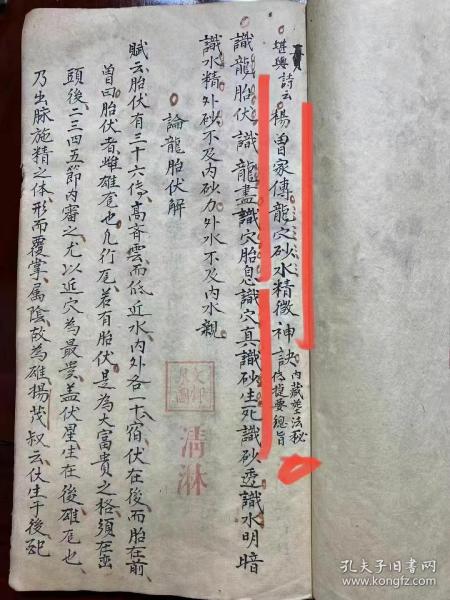 堪輿詩云
楊曾家傳龍穴砂水精微神訣
內藏塋法秘
傳捷要總旨
識龍胎伏識龍盡識穴胎息識穴真識砂生死識砂透識水明暗
識水精外砂不及內砂力外水不及內水親
論龍胎伏解
賦云胎伏有三十六傳高齊雲而低近水內外各一十宿伏在後而胎在前
曾曰胎伏者雌雄也凡行若有胎伏是為大富貴之格須在巒
頭後二三四五節內審之尤以近穴為最貴蓋伏星生在後雄也
乃生脉施精之体形而覆掌屬陰故為雄楊茂叔云伏生于後
清淋
孔夫子旧书网